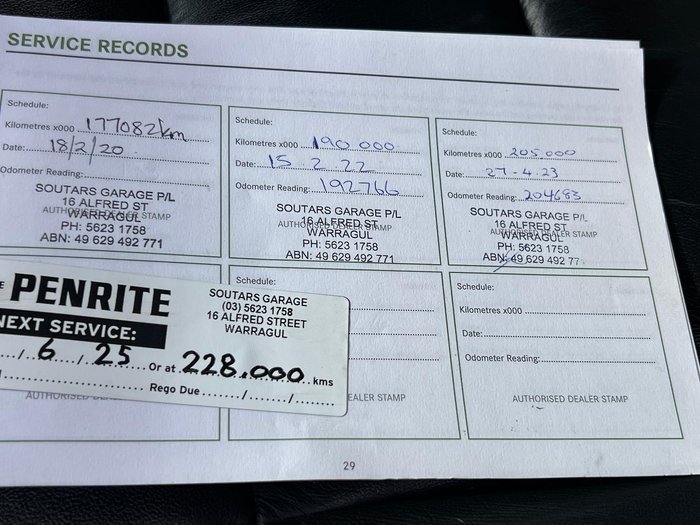 SERVICE RECORDS
Schedule:
Kilometres x000 177082km
Date: 18/2/20
Odometer Reading:
SOUTARS GARAGE P/L
16 ALFRED ST
AUTHORISED DEALER STAMP
WARRAGUL
PH: 5623 1758
ABN: 49 629 492 771
Schedule:
Kilometres x000 190 000
Date: 15.2.22
Odometer Reading: 192766
SOUTARS GARAGE P/L
16 ALFRED ST
AUTHORISED DEALER STAMP
WARRAGUL
PH: 5623 1758
ABN: 49 629 492 771
Schedule:
Kilometres x000 205.000
Date: 27-4.23
Odometer Reading: 204683
SOUTARS GARAGE P/L
16 ALFRED ST
AUTHORISED DEALER STAMP
WARRAGUL
PH: 5623 1758
ABN: 49 629 492 77
PENRITE
NEXT SERVICE:
SOUTARS GARAGE
(03) 5623 1758
16 ALFRED STREET
WARRAGUL
/ 6 / 25 Or at 228.000 kms
Rego Due ....../....../......
AUTHORISED DEA
Schedule:
EALER STAMP
Schedule:
Kilometres x000
Date:
Odometer Reading:
AUTHORISED DEALER STAMP
29